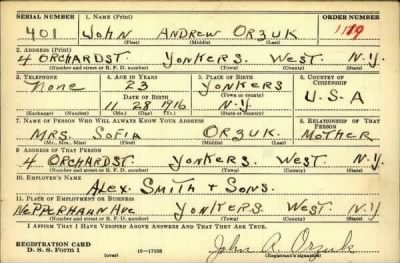 SERIAL NUMBER 1. NAME (Print) ORDER NUMBER
401 JOHN ANDREW ORZUK 1179
(First) (Middle) (Last)
2. ADDRESS (Print)
4 ORCHARD ST. YONKERS. WEST. N.Y.
(Number and street or R. F. D. number) (Town) (County) (State)
3. TELEPHONE 4. AGE IN YEARS 5. PLACE OF BIRTH 6. COUNTRY OF CITIZENSHIP
None 23 YONKERS
DATE OF BIRTH (Town or county)
11 28 1916 N.Y. U.S.A
(Exchange) (Number) (Mo.) (Day) (Yr.) (State or country)
7. NAME OF PERSON WHO WILL ALWAYS KNOW YOUR ADDRESS 8. RELATIONSHIP OF THAT PERSON
MRS. SOFIA ORZUK. MOTHER
(Mr., Mrs., Miss) (First) (Middle) (Last)
9. ADDRESS OF THAT PERSON
4 ORCHARD ST. YONKERS. WEST. N.Y.
(Number and street or R. F. D. number) (Town) (County) (State)
10. EMPLOYER'S NAME
ALEX. SMITH + SONS.
11. PLACE OF EMPLOYMENT OR BUSINESS
NEPPERHAAN AVE YONKERS. WEST. N.Y
(Number and street or R. F. D. number) (Town) (County) (State)
I AFFIRM THAT I HAVE VERIFIED ABOVE ANSWERS AND THAT THEY ARE TRUE.
REGISTRATION CARD
D. S. S. Form 1 (over) 16—17105 John A. Orzuk
(Registrant's signature)